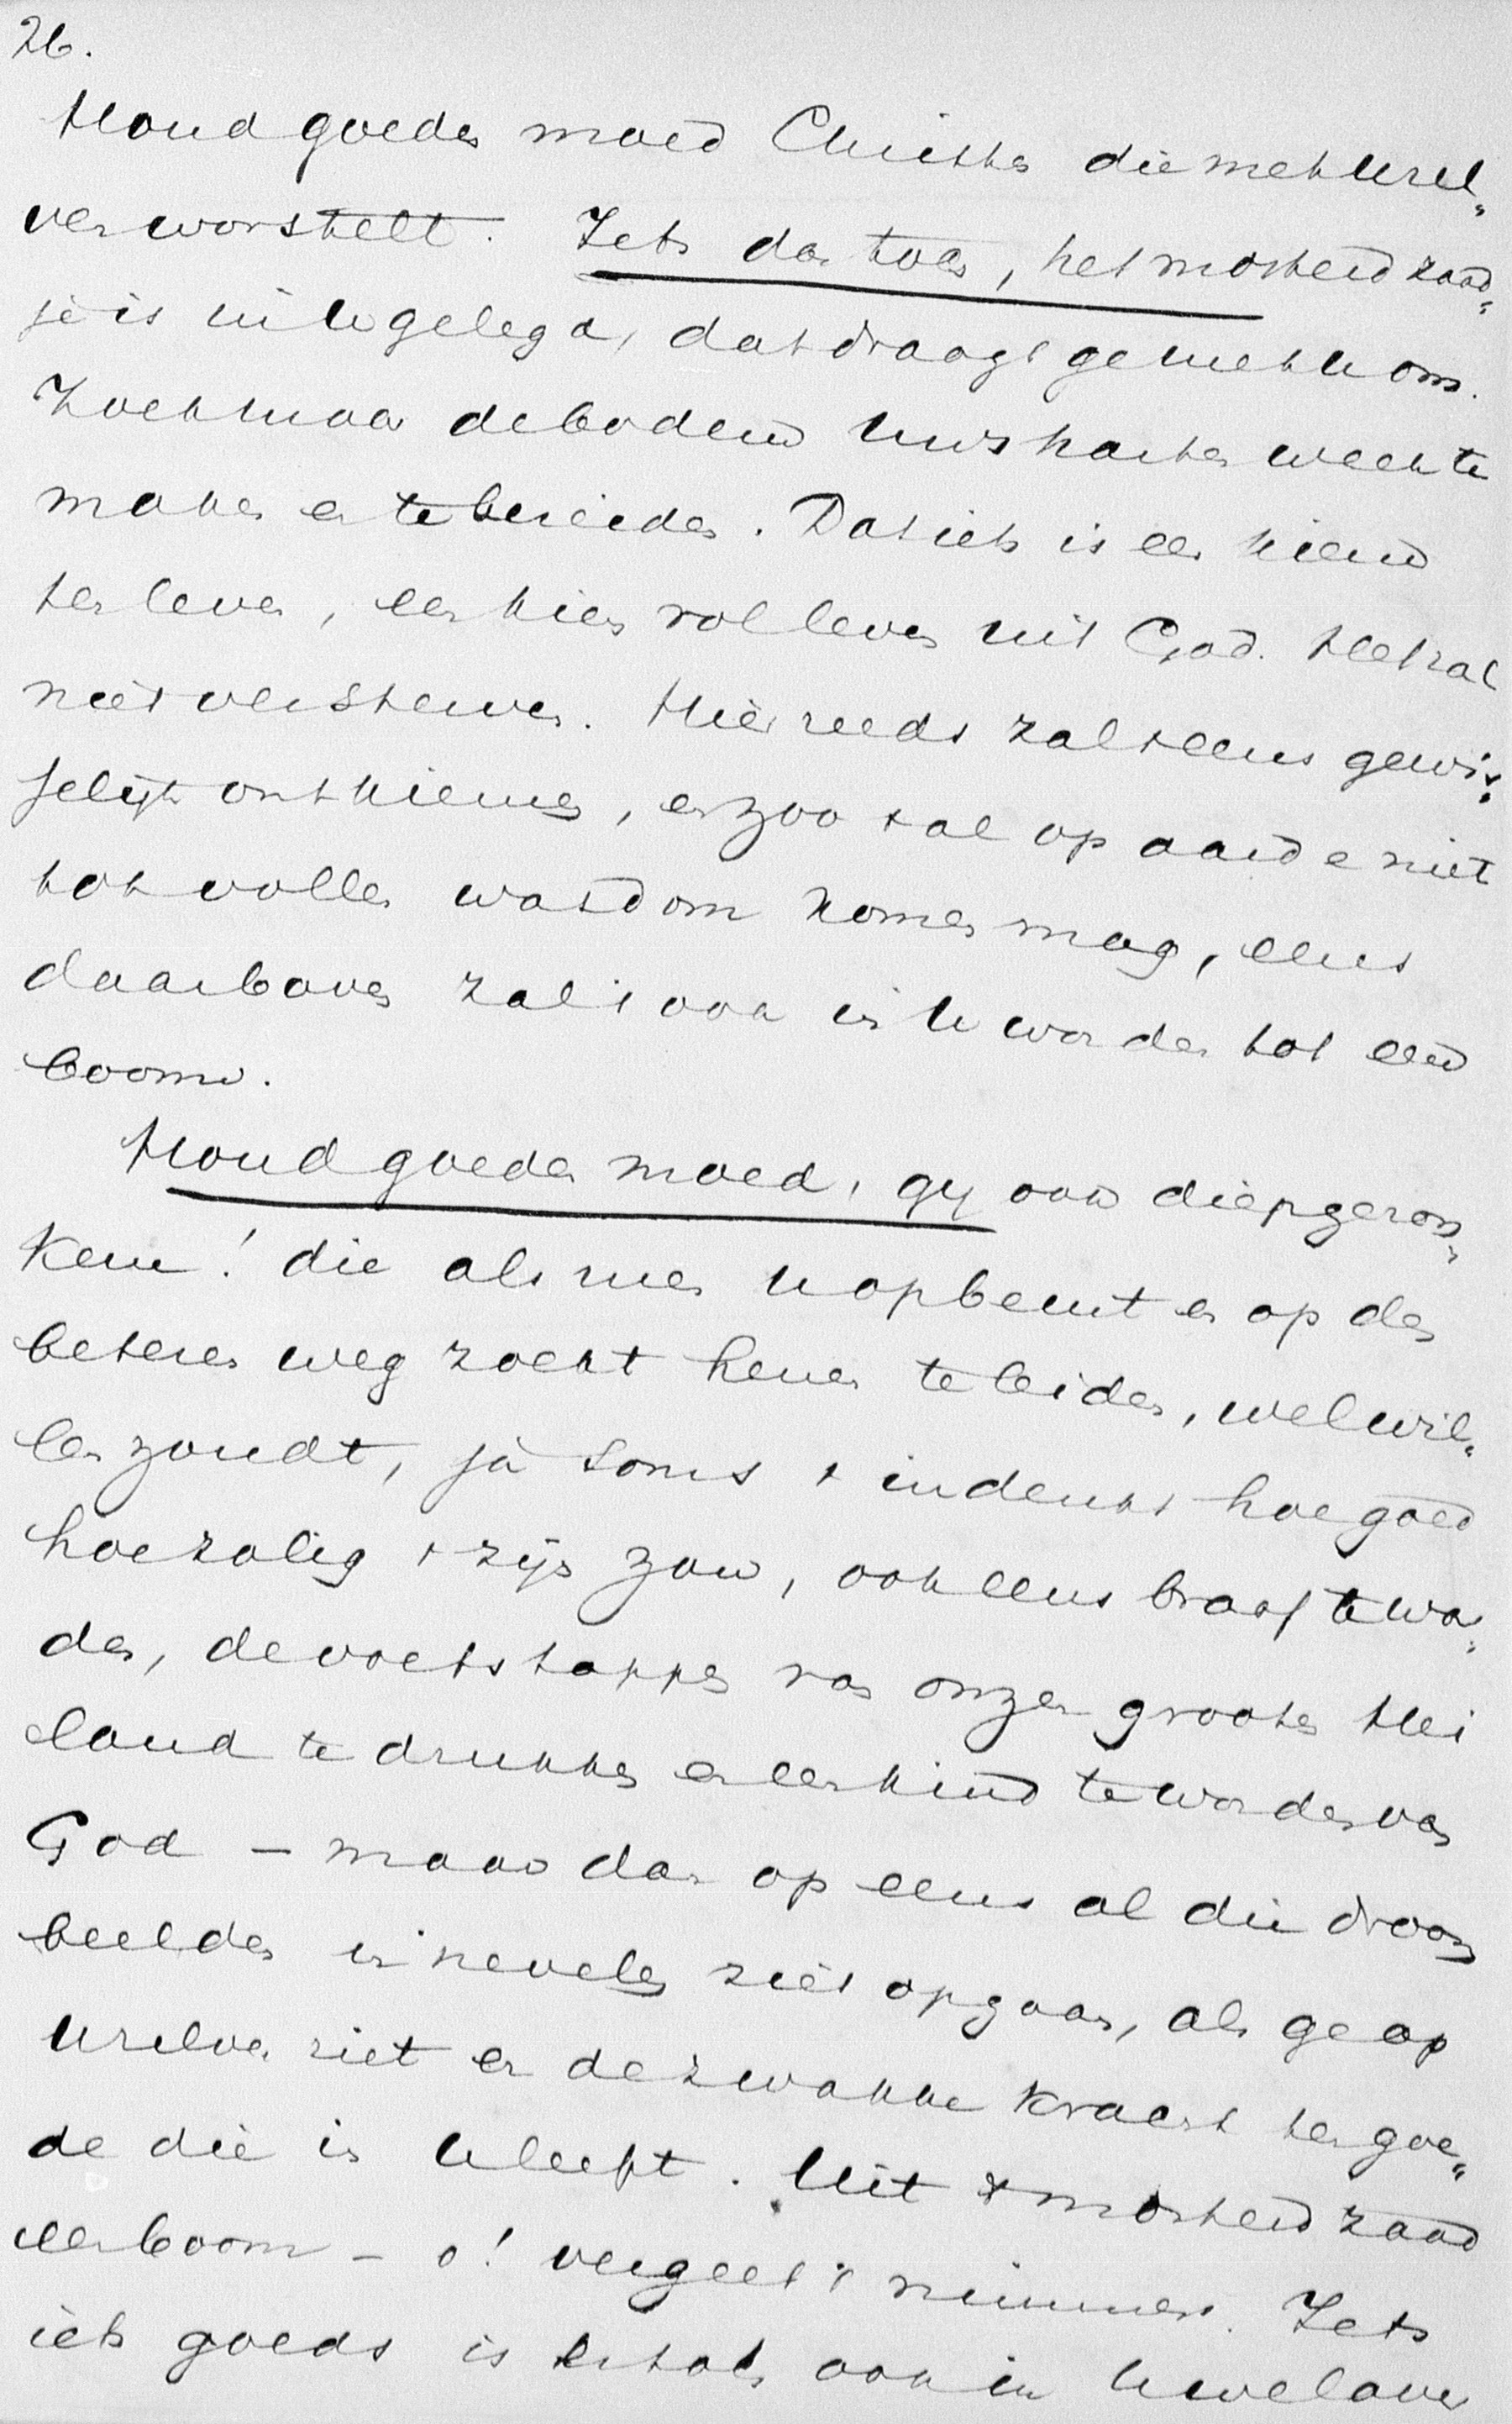 26.
Houd goeden moed Christen die met Uzel„
ven worstelt. Iets dan toch, het mosterdzaad„
je is in U gelegd, dat draagt ge met U om.
Zoek maar de bodem Uws harten week te
maken en te bereiden. Dat iets is een kiem
ten leven, een kiem vol leven uit God. Het zal
niet versterven. Hier reeds zal 't eens gewis„
selijk ontkiemen, en zoo 't al op aarde niet
tot vollen wasdom komen mag, eens
daarboven zal 't ook in U worden tot een
boom.
Houd goeden moed, gy ook diepgezon„
kene! die als men U opbeurt en op den
beteren weg zoekt henen te leiden, wel wil„
len zoudt, ja soms 't indenkt hoe goed
hoe zalig 't zijn zou, ook eens braaf te wor„
den, de voetstappen van onzen grooten Hei
land te drukken en een kind te worden van
God – maar dan op eens al die droom
beelden in nevelen ziet opgaan, als ge op
Uzelven ziet en de zwakke kracht ten goe„
de die in U leeft. Uit 't mosterdzaad
een boom – o! vergeet 't nimmer. Iets
iets goeds is er toch ook in U welaan